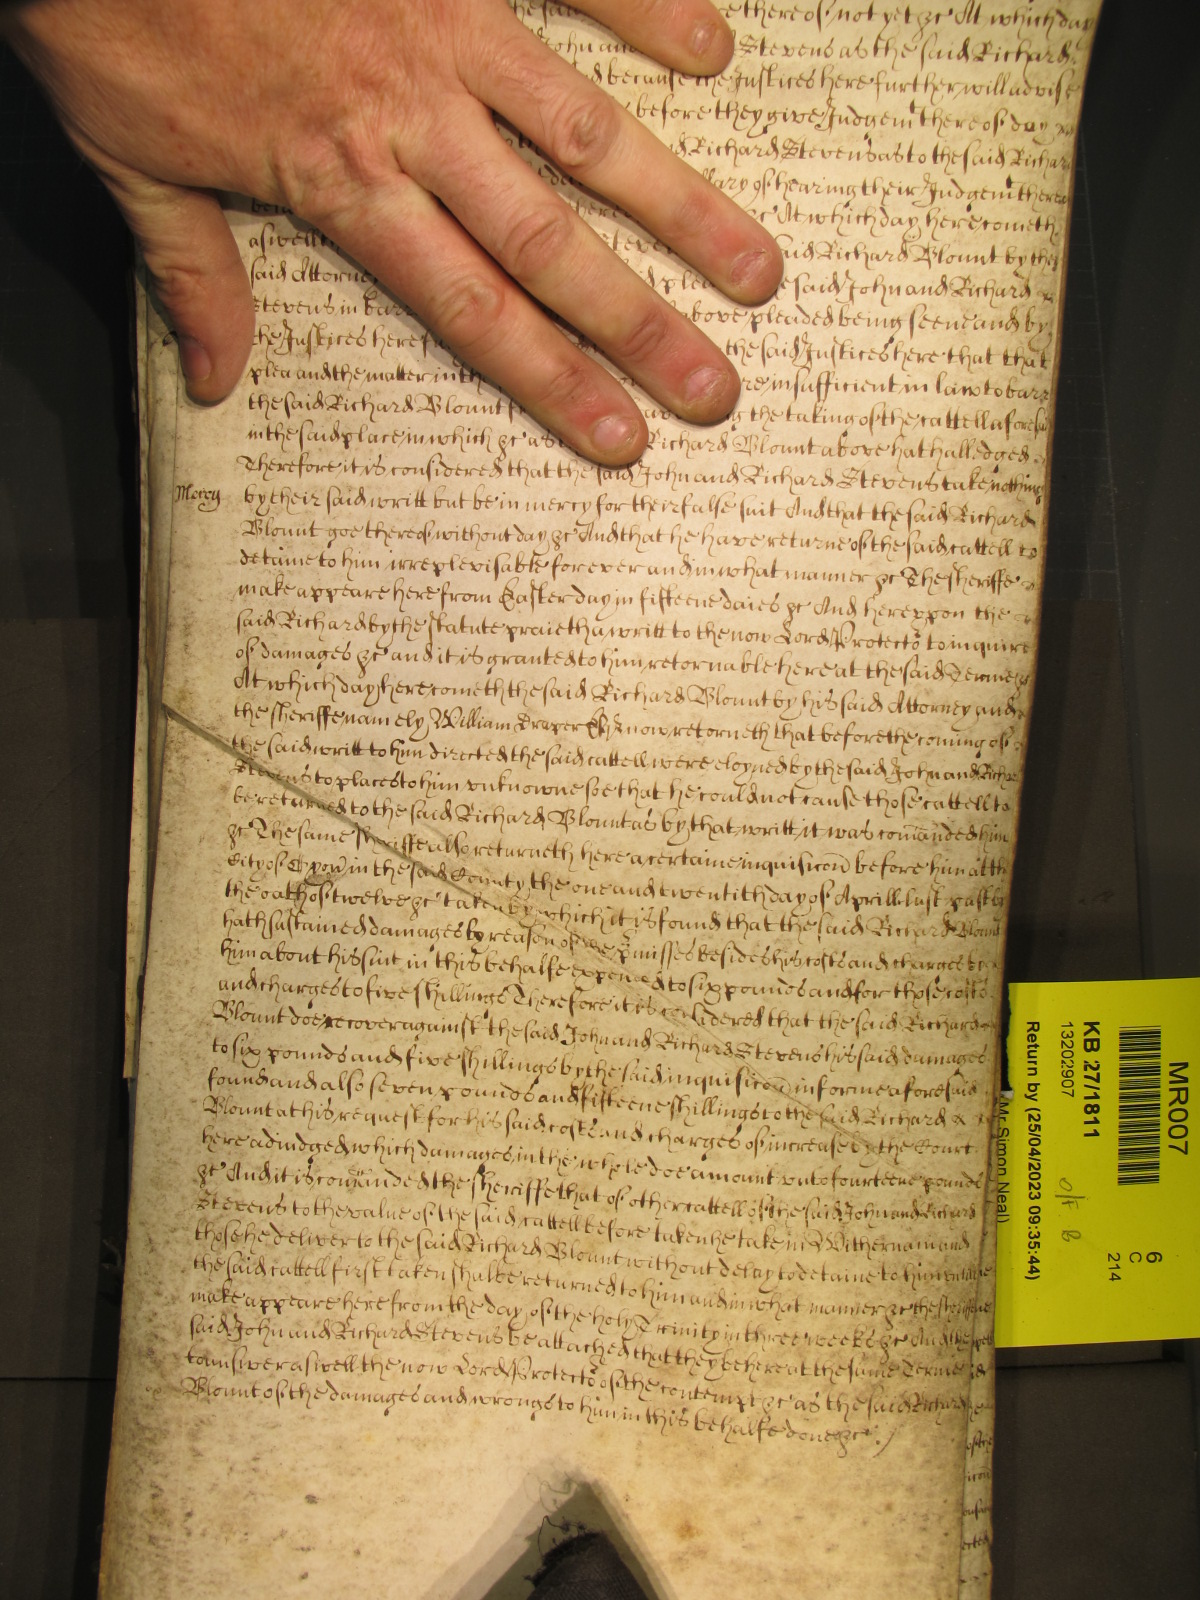 thereof not yet &c At which day
John and Stevens as the said Richard
because the Justices here further will advise
before they give Judgemt thereof day
Richard Stevens as to the said Richard
of hearing their Judgemt there
&c At which day here cometh
aswell said Richard Blount by their
said Attorney the said John and Richard
Stevens in barr above pleaded being seene and by
the Justices here the said Justices here that that
plea and the matter in the insufficient in law to barr
the said Richard Blount the taking of the cattell aforesaid
in the said place in which &c as Richard Blount above hath alledged
Therefore it is considered that the said John and Richard Stevens take nothing
Mercy
by their said writt but be in mercy for their false suit And that the said Richard
Blount goe thereof without day &c And that he have returne of the said cattell to
detaine to him irreplevisable for ever and in what manner &c The Sheriffe
make appeare here from Easter day in fifteene daies &c And hereupon the
said Richard by the statute praieth a writt to the now Lord Protector to inquire
of damages &c and it is granted to him retornable here at the said Terme
At which day here cometh the said Richard Blount by his said Attorney and
the sheriffe namely William Draper Esqr now retorneth that before the coming of
the said writt to him directed the said cattell were eloyned by the said John and Richard
Stevens to places to him unknowne soe that he could not cause those cattell to
be returned to the said Richard Blount as by that writt it was comanded him
&c The same Sheriffe also returneth here a certaine inquisicon before him att the
City of Oxon in the said County the one and twentith day of Aprill last past by
the oath of twelve &c taken by which it is found that the said Richard Blount
hath sustained damages by reason of the pmisses besides his costs and charges by
him about his suit in this behalfe expended to six pounds and for those costs
and charges to five shillings Therefore it is considered that the said Richard
Blount doe recover against the said John and Richard Stevens his said damages
to six pounds and five shillings by the said inquisicon in forme aforesaid
found and also seven pounds and fifteene shillings to the said Richard
Blount at his request for his said costs and charges of increase by the Court
here adiudged which damages in the whole doe amount unto fourteene pounds
&c And it is comanded the sheriffe that of other cattell of the said John and Richard
Stevens to the value of the said cattell before taken he take in Withernam and
those he deliver to the said Richard Blount without delay to detaine to him untill
the said cattell first taken shalbe returned to him and in what manner &c the Sheriffe
make appeare here from the day of the holy Trinity in three weekes &c And the
said John and Richard Stevens be attached that they be here at the same Terme
to answer aswell the now Lord Protector of the contempt &c as the said Richard
Blount of the damages and wrongs to him in this behalfe done &c
MR007
KB 27/1811
13202907
Return by (25/04/2023 09:35:44)
Mr Simon Neal)
6
C
214